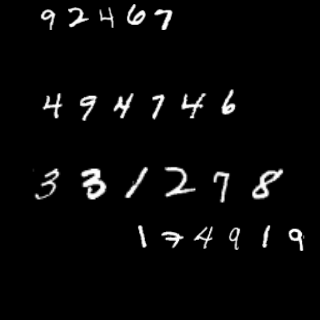 92467
494746
331278
174919